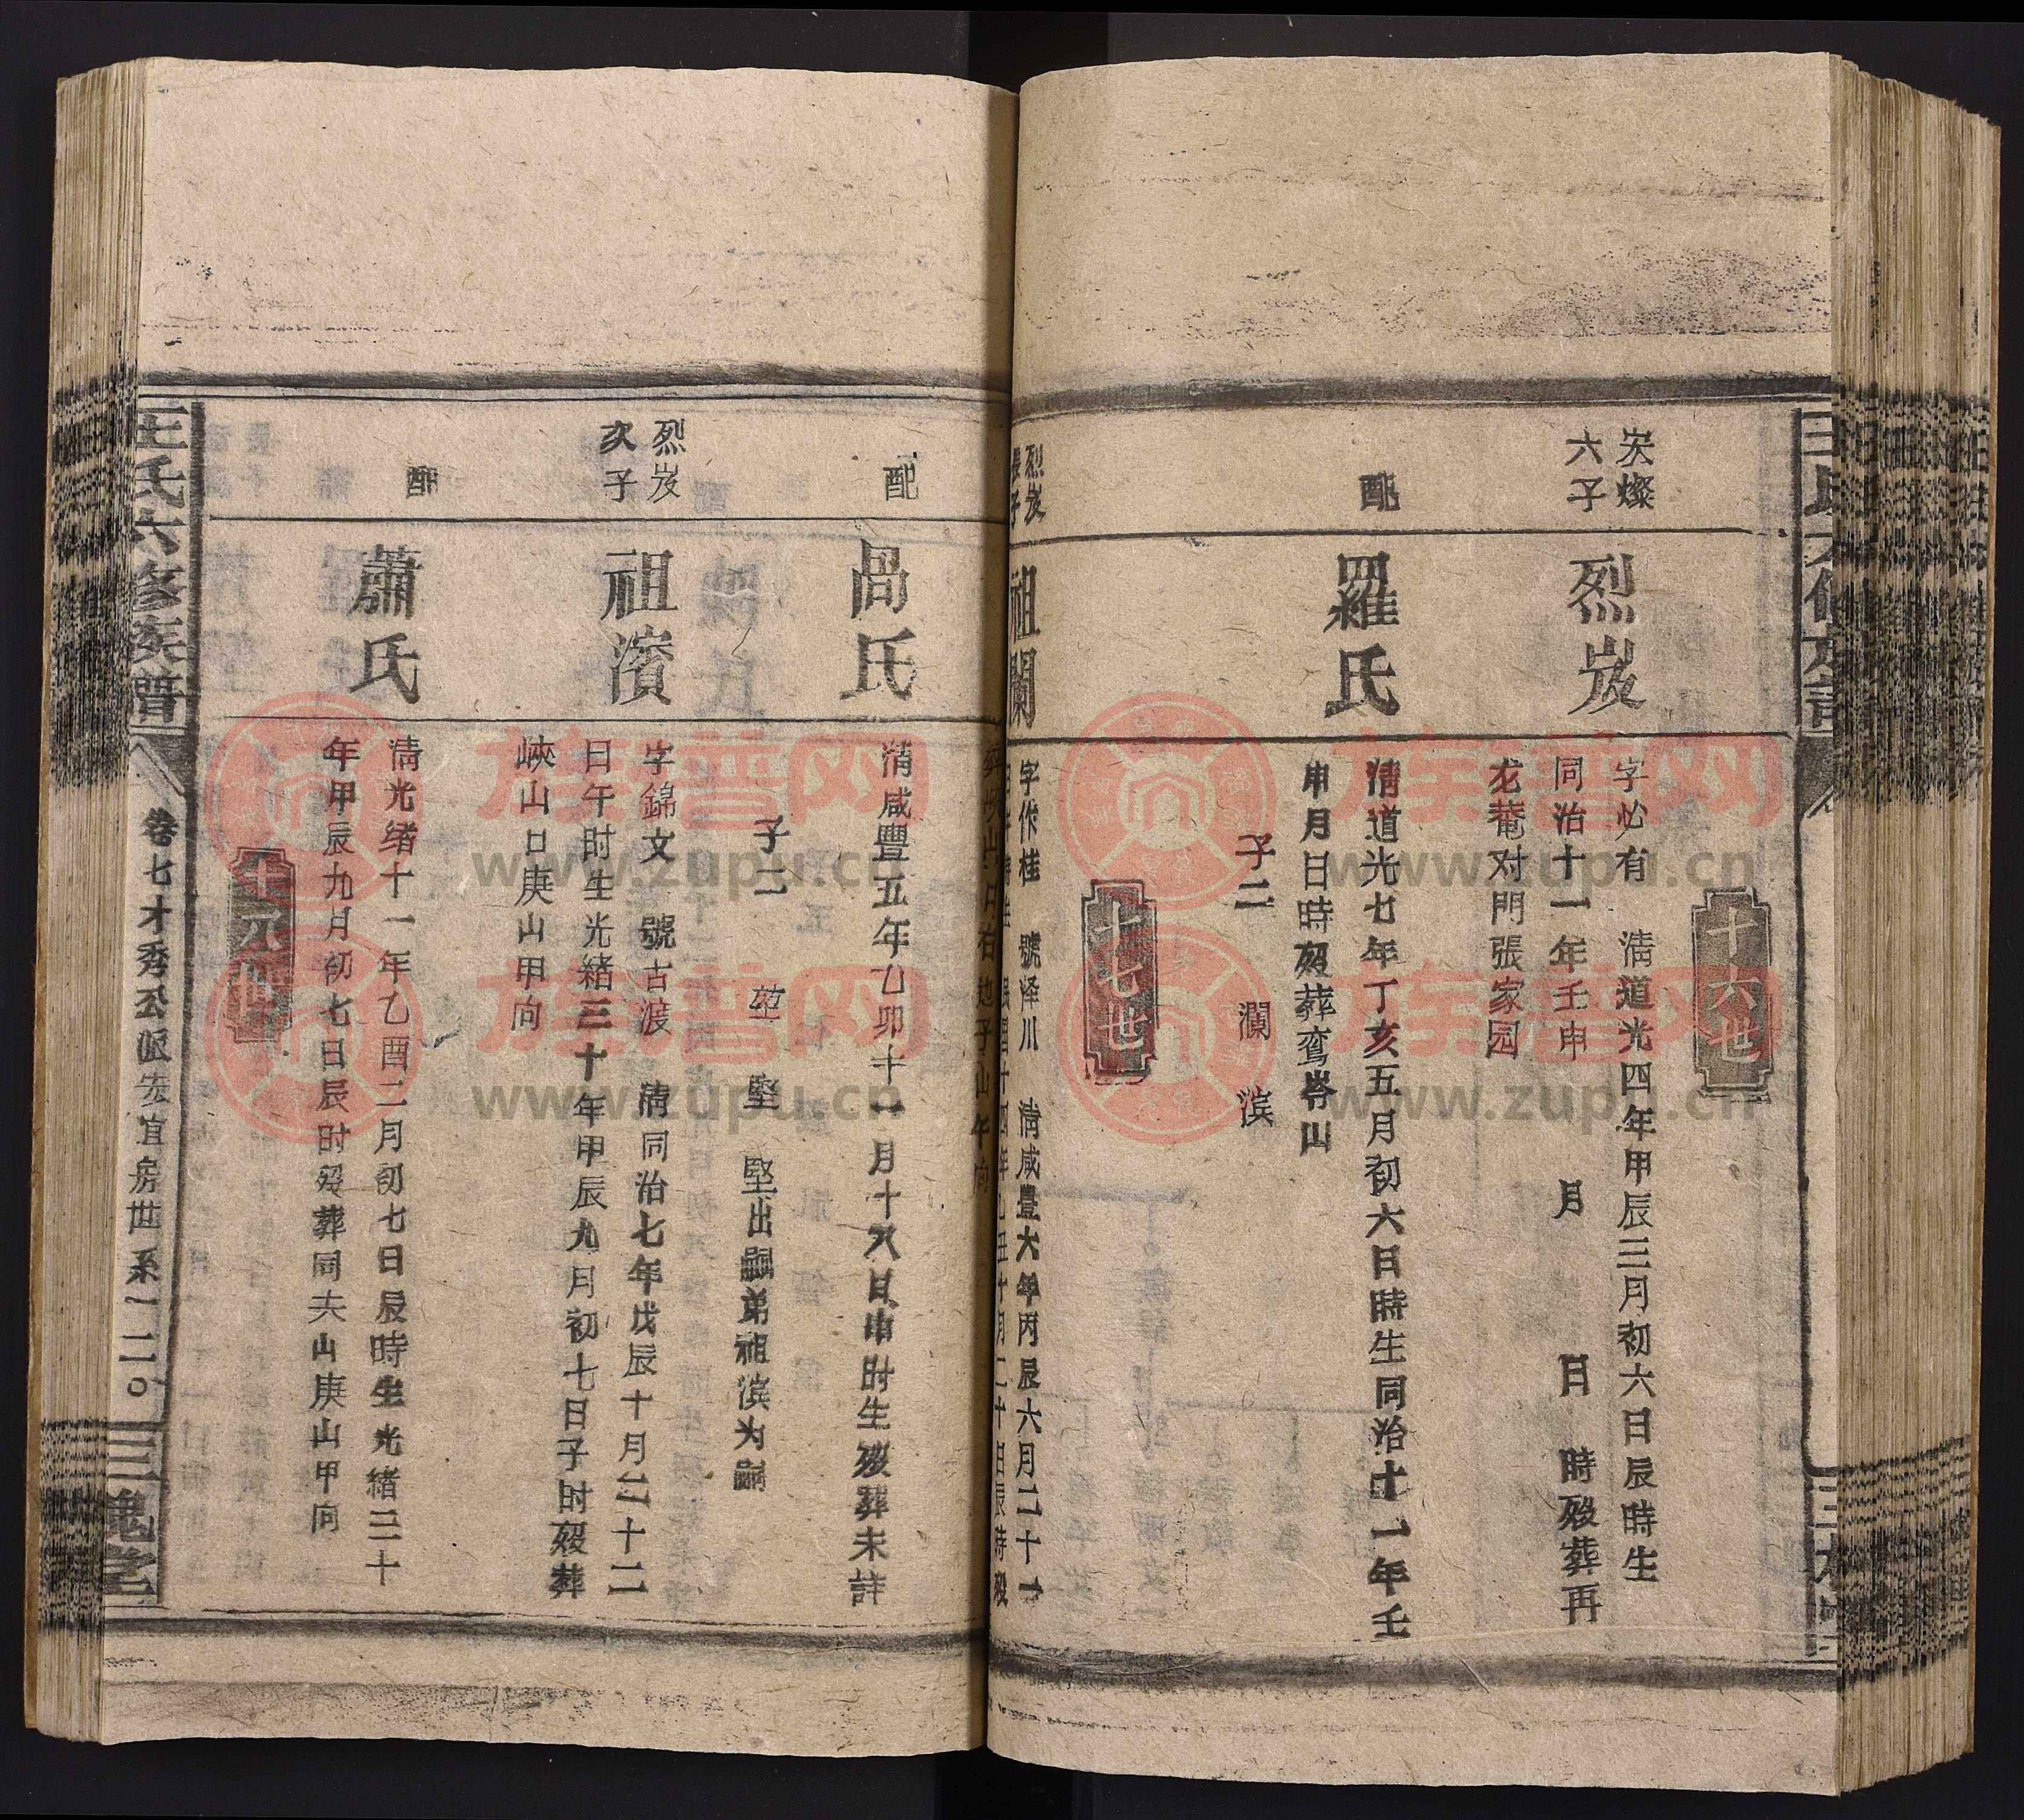 十六世
炏燦
六子
烈炭
字必有 清道光四年甲辰三月初六日辰時生
同治十一年壬申 月 日 時歿葬再
龙菴对門張家园
配
羅氏
清道光七年丁亥五月初六日時生同治十一年壬
申月日時歿葬鸾峇山
子二 瀾 滨
十七世
烈炭
長子
祖瀾
字作桂 號泽川 清咸豐六年丙辰六月二十一
葬坝山 右地子山午向
配
咼氏
清咸豐五年乙卯十一月十八日申时生歿葬未註
子二 堃 堅 堅出嗣弟祖滨为嗣
烈炭
次子
祖濱
字錦文 號古渡 清同治七年戊辰十月二十二
日午时生光緒三十年甲辰九月初七日子时歿葬
峽山口庚山甲向
配
蕭氏
清光绪十一年乙酉二月初七日辰時生光緒三十
年甲辰九月初七日辰时歿葬同夫山庚山甲向
十八世
王氏六修族譜
卷七才秀公派宏宜房世系一二〇
三槐堂
族譜网
www.zupu.cn
族譜网
www.zupu.cn
族譜网
www.zupu.cn
族譜网
www.zupu.cn